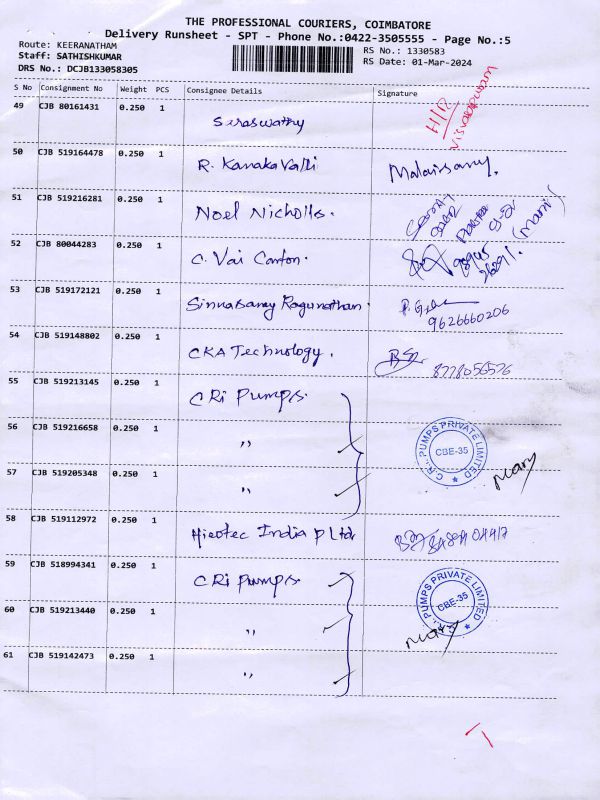 THE PROFESSIONAL COURIERS, COIMBATORE
Delivery Runsheet - SPT - Phone No.:0422-3505555 - Page No.:5
Route: KEERANATHAM
RS No.: 1330583
Staff: SATHISHKUMAR
RS Date: 01-Mar-2024
DRS No.: DCJB133058305
S No Consignment No Weight PCS Consignee Details Signature
49 CJB 80161431 0.250 1 Saraswathy
50 CJB 519164478 0.250 1 R. Kanaka Valli
51 CJB 519216281 0.250 1 Noel Nicholls.
52 CJB 80044283 0.250 1 C. Vai Canton.
53 CJB 519172121 0.250 1 Sinnasamy Ragunathan. 9626660206
54 CJB 519148802 0.250 1 CKA Technology.
55 CJB 519213145 0.250 1 CRi Pumps.
56 CJB 519216658 0.250 1 "
C.R.I. PUMPS PRIVATE LIMITED
CBE-35
57 CJB 519205348 0.250 1 "
Mary
58 CJB 519112972 0.250 1 India P Ltd
59 CJB 518994341 0.250 1 CRi Pumps
PUMPS PRIVATE LIMITED
CBE-35
60 CJB 519213440 0.250 1 "
Mary
61 CJB 519142473 0.250 1 "